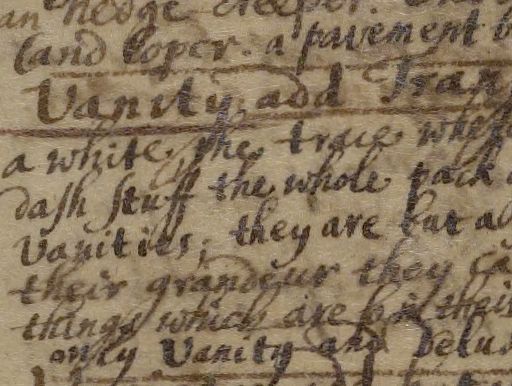 an hedge creeper.
land loper. a pavement
Vanity. add Tran
a white, the trace where
dash stuff the whole pack
Vanities; they are but a
their grandeur they ca
things which are but their
only Vanity and Delu